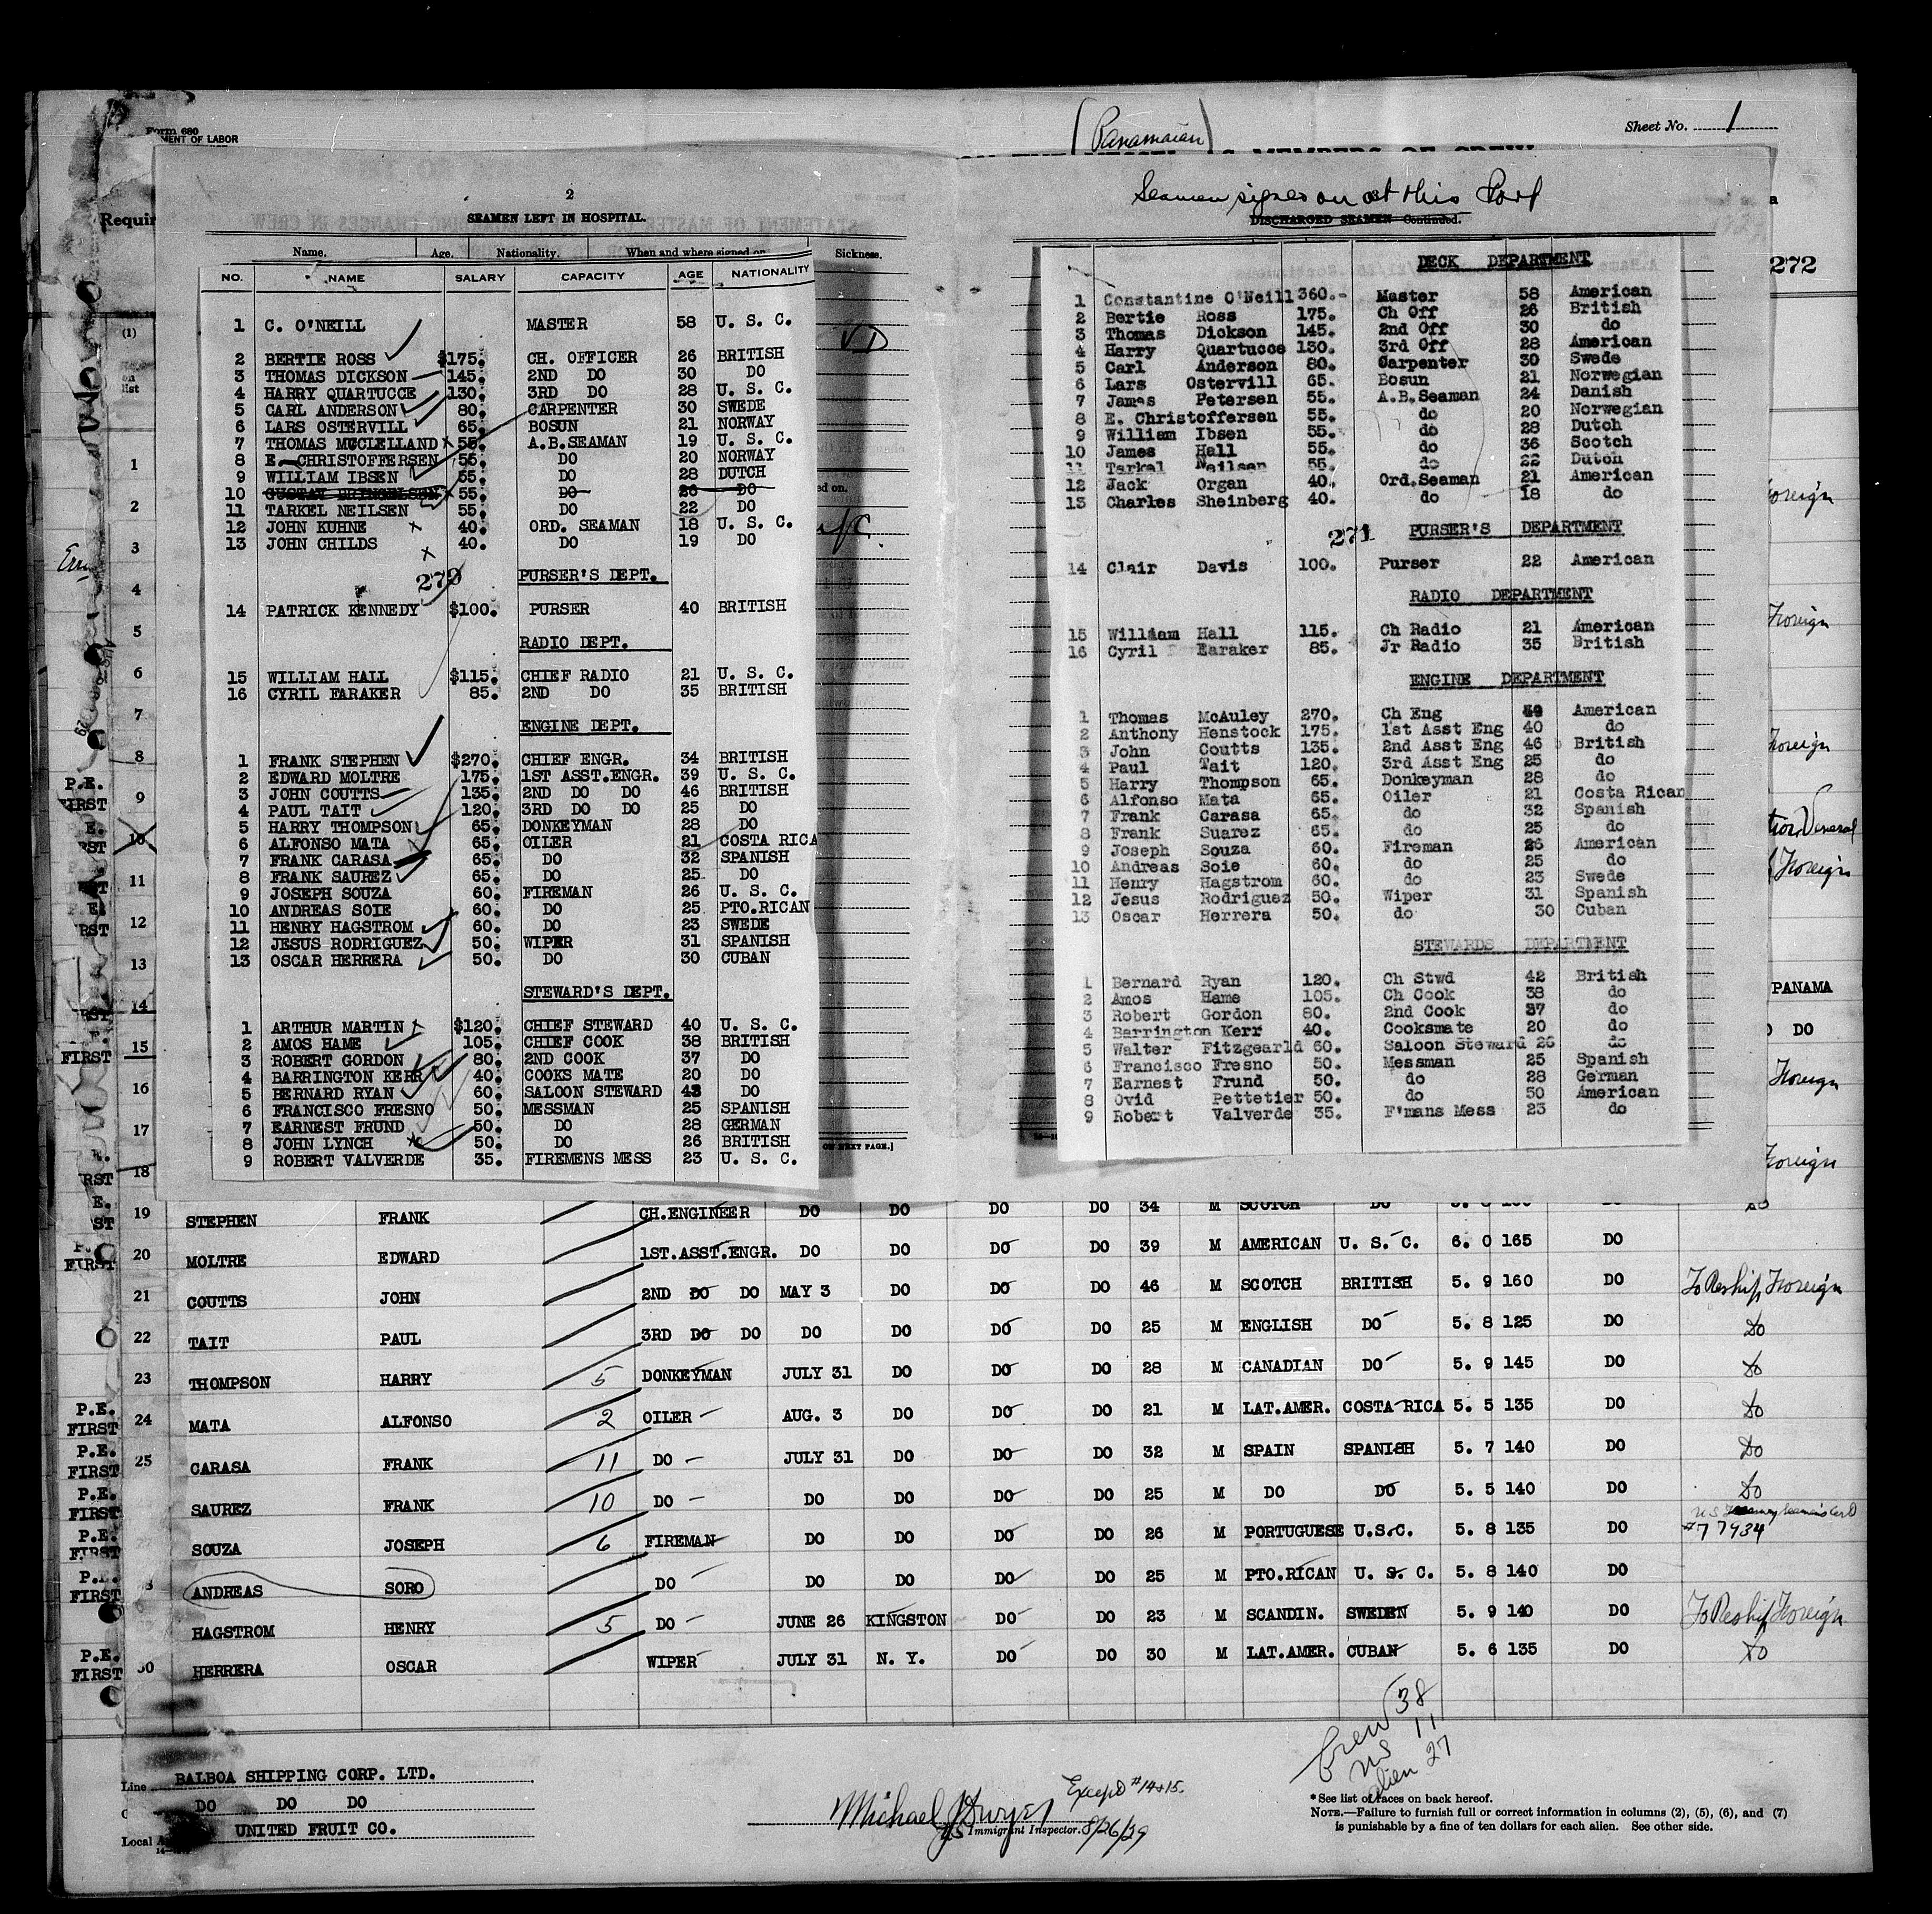 Form 680
MENT OF LABOR
(Panamaian)
Sheet No. 1
Requir
272
2
SEAMEN LEFT IN HOSPITAL.
Name. Age. Nationality. When and where signed on. Sickness.
NO. NAME SALARY CAPACITY AGE NATIONALITY
1 C. O'NEILL MASTER 58 U. S. C.
2 BERTIE ROSS $175. CH. OFFICER 26 BRITISH
3 THOMAS DICKSON 145. 2ND DO 30 DO
4 HARRY QUARTUCCE 130. 3RD DO 28 U. S. C.
5 CARL ANDERSON 80. CARPENTER 30 SWEDE
6 LARS OSTERVILL 65. BOSUN 21 NORWAY
7 THOMAS MCCLELLAND 55. A.B.SEAMAN 19 U. S. C.
8 E. CHRISTOFFERSEN 55. DO 20 NORWAY
9 WILLIAM IBSEN 55. DO 28 DUTCH
10 55. DO 26 DO
11 TARKEL NEILSEN 55. DO 22 DO
12 JOHN KUHNE 40. ORD. SEAMAN 18 U. S. C.
13 JOHN CHILDS 40. DO 19 DO
PURSER'S DEPT.
14 PATRICK KENNEDY $100. PURSER 40 BRITISH
RADIO DEPT.
15 WILLIAM HALL $115. CHIEF RADIO 21 U. S. C.
16 CYRIL EARAKER 85. 2ND DO 35 BRITISH
ENGINE DEPT.
1 FRANK STEPHEN $270. CHIEF ENGR. 34 BRITISH
2 EDWARD MOLTRE 175. 1ST ASST.ENGR. 39 U. S. C.
3 JOHN COUTTS 135. 2ND DO DO 46 BRITISH
4 PAUL TAIT 120. 3RD DO DO 25 DO
5 HARRY THOMPSON 65. DONKEYMAN 28 DO
6 ALFONSO MATA 65. OILER 21 COSTA RICA
7 FRANK CARASA 65. DO 32 SPANISH
8 FRANK SAUREZ 65. DO 25 DO
9 JOSEPH SOUZA 60. FIREMAN 26 U. S. C.
10 ANDREAS SOIE 60. DO 25 PTO.RICAN
11 HENRY HAGSTROM 60. DO 23 SWEDE
12 JESUS RODRIGUEZ 50. WIPER 31 SPANISH
13 OSCAR HERRERA 50. DO 30 CUBAN
STEWARD'S DEPT.
1 ARTHUR MARTIN $120. CHIEF STEWARD 40 U. S. C.
2 AMOS HAME 105. CHIEF COOK 38 BRITISH
3 ROBERT GORDON 80. 2ND COOK 37 DO
4 BARRINGTON KERR 40. COOKS MATE 20 DO
5 BERNARD RYAN 60. SALOON STEWARD 42 DO
6 FRANCISCO FRESNO 50. MESSMAN 25 SPANISH
7 EARNEST FRUND 50. DO 28 GERMAN
8 JOHN LYNCH 50. DO 26 BRITISH
9 ROBERT VALVERDE 35. FIREMENS MESS 23 U. S. C.
VD
ON NEXT PAGE.]
Seamen signes on at this Port
DISCHARGED SEAMEN—Continued.
DECK DEPARTMENT
1 Constantine O'Neill 360.- Master 58 American
2 Bertie Ross 175. Ch Off 26 British
3 Thomas Dickson 145. 2nd Off 30 do
4 Harry Quartucce 130. 3rd Off 28 American
5 Carl Anderson 80. Carpenter 30 Swede
6 Lars Ostervill 65. Bosun 21 Norwegian
7 James Petersen 55. A.B.Seaman 24 Danish
8 E. Christoffersen 55. do 20 Norwegian
9 William Ibsen 55. do 28 Dutch
10 James Hall 55. do 36 Scotch
11 Tarkal Neilsen 55. do 22 Dutch
12 Jack Organ 40. Ord.Seaman 21 American
13 Charles Sheinberg 40. do 18 do
271 PURSER'S DEPARTMENT
14 Clair Davis 100. Purser 22 American
RADIO DEPARTMENT
15 William Hall 115. Ch Radio 21 American
16 Cyril Earaker 85. Jr Radio 35 British
ENGINE DEPARTMENT
1 Thomas McAuley 270. Ch Eng 49 American
2 Anthony Henstock 175. 1st Asst Eng 40 do
3 John Coutts 135. 2nd Asst Eng 46 British
4 Paul Tait 120. 3rd Asst Eng 25 do
5 Harry Thompson 65. Donkeyman 28 do
6 Alfonso Mata 65. Oiler 21 Costa Rican
7 Frank Carasa 65. do 32 Spanish
8 Frank Suarez 65. do 25 do
9 Joseph Souza 60. Fireman 26 American
10 Andreas Soie 60. do 25 do
11 Henry Hagstrom 60. do 23 Swede
12 Jesus Rodriguez 50. Wiper 31 Spanish
13 Oscar Herrera 50. do 30 Cuban
STEWARDS DEPARTMENT
1 Bernard Ryan 120. Ch Stwd 42 British
2 Amos Hame 105. Ch Cook 38 do
3 Robert Gordon 80. 2nd Cook 37 do
4 Barrington Kerr 40. Cooksmate 20 do
5 Walter Fitzgearld 60. Saloon Steward 26 do
6 Francisco Fresno 50. Messman 25 Spanish
7 Earnest Frund 50. do 28 German
8 Ovid Pettetier 50. do 50 American
9 Robert Valverde 35. F'mans Mess 23 do
Foreign
Foreign
Foreign
Foreign
PANAMA
DO
Foreign
Foreign
19 STEPHEN FRANK CH.ENGINEER DO DO DO DO 34 M SCOTCH DO
20 MOLTRE EDWARD 1ST.ASST.ENGR. DO DO DO DO 39 M AMERICAN U. S. C. 6. 0 165 DO
21 COUTTS JOHN 2ND DO DO MAY 3 DO DO DO 46 M SCOTCH BRITISH 5. 9 160 DO To Reship Foreign
22 TAIT PAUL 3RD DO DO DO DO DO DO 25 M ENGLISH DO 5. 8 125 DO Do
23 THOMPSON HARRY 5 DONKEYMAN JULY 31 DO DO DO 28 M CANADIAN DO 5. 9 145 DO Do
P.E. FIRST 24 MATA ALFONSO 2 OILER AUG. 3 DO DO DO 21 M LAT.AMER. COSTA RICA 5. 5 135 DO Do
P.E. FIRST 25 CARASA FRANK 11 DO JULY 31 DO DO DO 32 M SPAIN SPANISH 5. 7 140 DO Do
P.E. FIRST SAUREZ FRANK 10 DO DO DO DO DO 25 M DO DO 5. 5 140 DO Do
P.E. FIRST SOUZA JOSEPH 6 FIREMAN DO DO DO DO 26 M PORTUGUESE U.S.C. 5. 8 135 DO #77934
P.E. FIRST ANDREAS SORO DO DO DO DO DO 25 M PTO.RICAN U. S. C. 5. 8 140 DO
HAGSTROM HENRY 5 DO JUNE 26 KINGSTON DO DO 23 M SCANDIN. SWEDEN 5. 9 140 DO To Reship Foreign
P.E. FIRST 30 HERRERA OSCAR WIPER JULY 31 N. Y. DO DO 30 M LAT.AMER. CUBAN 5. 6 135 DO Do
Crew 38
US 11
alien 27
Line BALBOA SHIPPING CORP. LTD.
DO DO DO
Local A UNITED FRUIT CO.
Michael J Dwyer Except #14+15.
US Immigrant Inspector. 8/26/29
* See list of races on back hereof.
NOTE.—Failure to furnish full or correct information in columns (2), (5), (6), and (7)
is punishable by a fine of ten dollars for each alien. See other side.